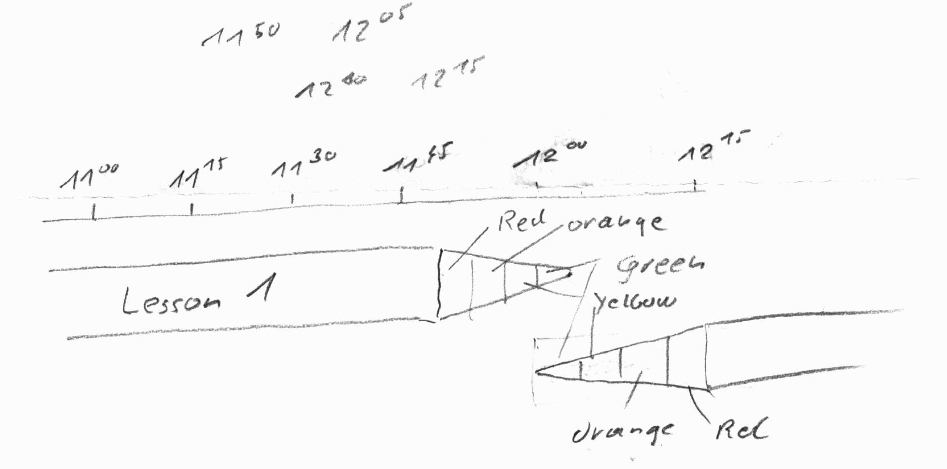 11⁵⁰ 12⁰⁵
12¹⁵
11⁰⁰ 11¹⁵ 11³⁰ 11⁴⁵ 12⁰⁰ 12¹⁵
Red orange
Green
Lesson 1
yellow
orange Red